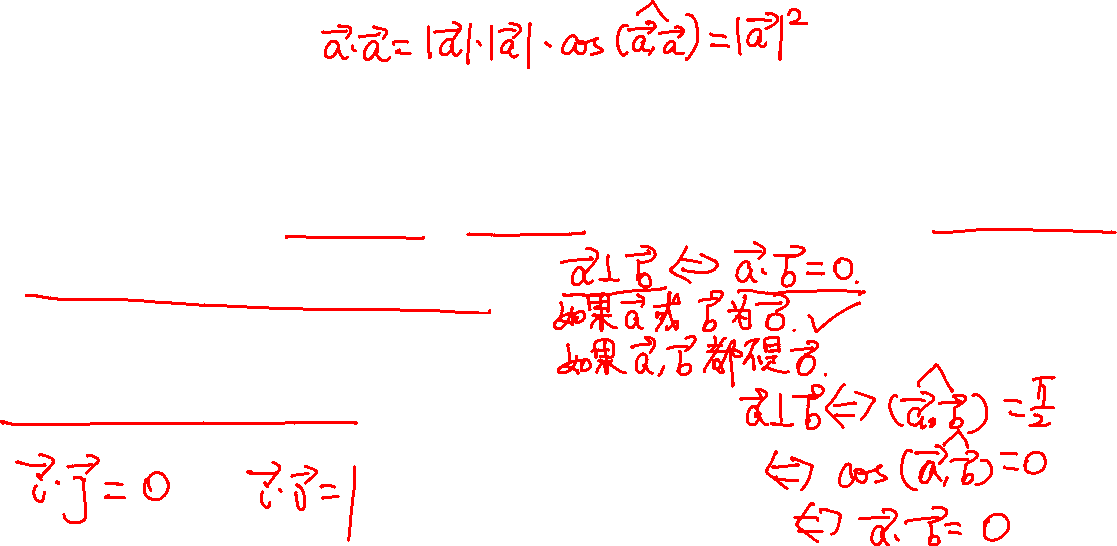 $\vec{a}\cdot\vec{a}=|\vec{a}|\cdot|\vec{a}|\cdot\cos(\widehat{\vec{a},\vec{a}})=|\vec{a}|^2$
$\vec{a}\perp\vec{b}\Leftrightarrow\vec{a}\cdot\vec{b}=0.$
如果$\vec{a}$或$\vec{b}$为$\vec{0}$. ✓
如果$\vec{a},\vec{b}$都不是$\vec{0}$.
$\vec{a}\perp\vec{b}\Leftrightarrow(\widehat{\vec{a},\vec{b}})=\frac{\pi}{2}$
$\Leftrightarrow\cos(\widehat{\vec{a},\vec{b}})=0$
$\Leftrightarrow\vec{a}\cdot\vec{b}=0$
$\vec{i}\cdot\vec{j}=0$ $\vec{i}\cdot\vec{i}=1$